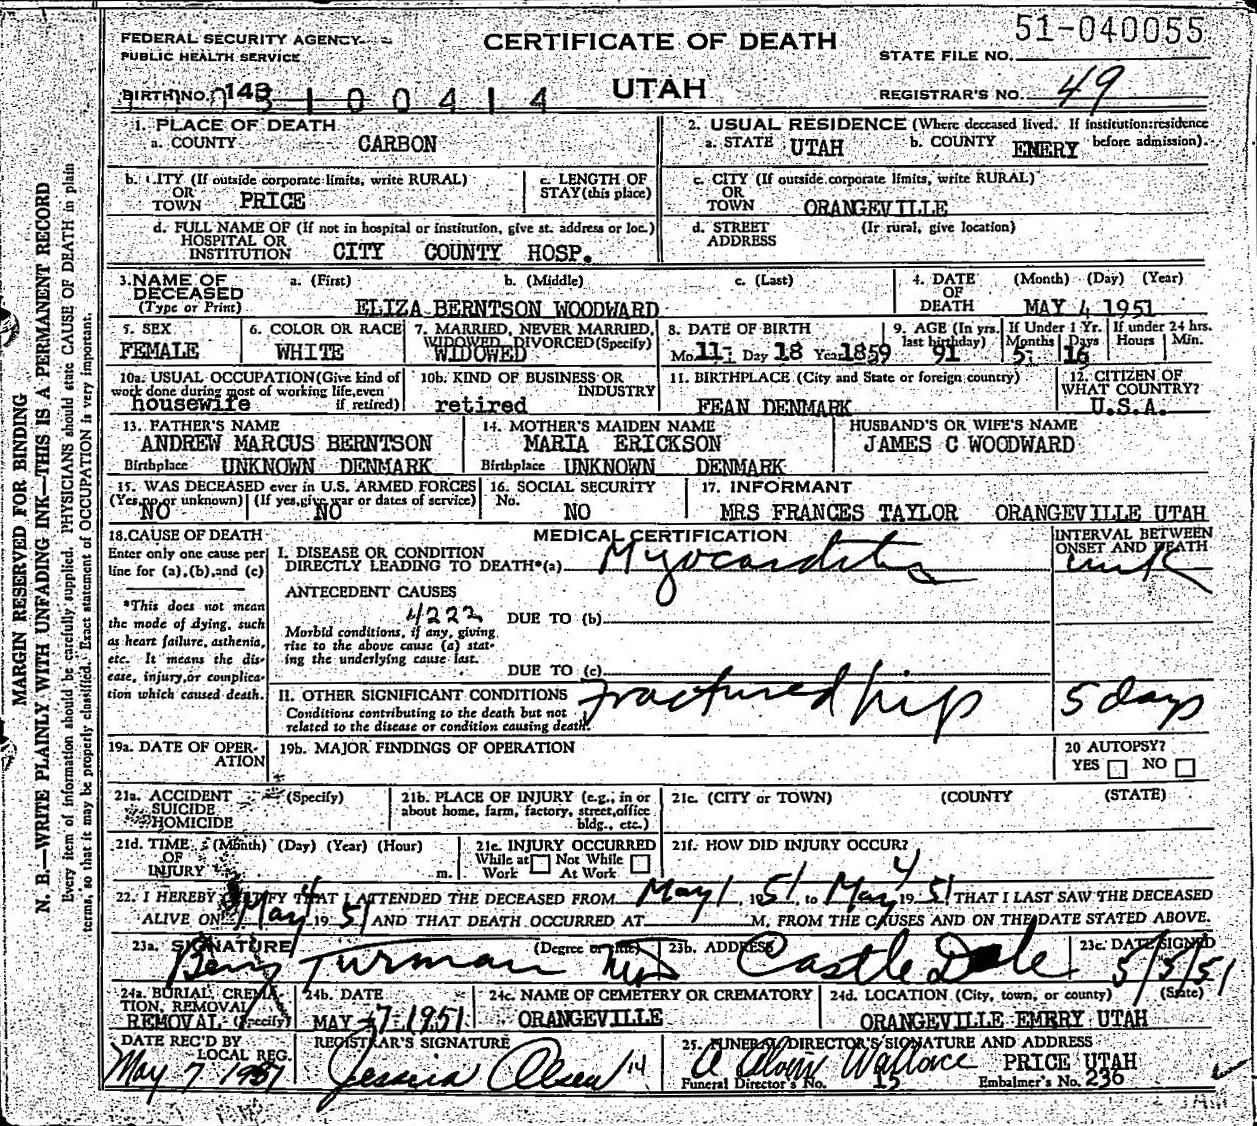 51-040055
FEDERAL SECURITY AGENCY
PUBLIC HEALTH SERVICE
CERTIFICATE OF DEATH
STATE FILE NO.
BIRTH NO. 143 1 0 0 4 1 4
UTAH
REGISTRAR'S NO. 49
1. PLACE OF DEATH
a. COUNTY CARBON
2. USUAL RESIDENCE (Where deceased lived. If institution: residence before admission).
a. STATE UTAH b. COUNTY EMERY
b. CITY (If outside corporate limits, write RURAL)
OR
TOWN PRICE
c. LENGTH OF
STAY (this place)
c. CITY (If outside corporate limits, write RURAL)
OR
TOWN ORANGEVILLE
d. FULL NAME OF (If not in hospital or institution, give st. address or loc.)
HOSPITAL OR
INSTITUTION CITY COUNTY HOSP.
d. STREET (If rural, give location)
ADDRESS
3. NAME OF a. (First) b. (Middle) c. (Last)
DECEASED
(Type or Print) ELIZA BERNTSON WOODWARD
4. DATE (Month) (Day) (Year)
OF
DEATH MAY 4 1951
5. SEX
FEMALE
6. COLOR OR RACE
WHITE
7. MARRIED, NEVER MARRIED,
WIDOWED, DIVORCED (Specify)
WIDOWED
8. DATE OF BIRTH
Mo. 11- Day 18 Year 1859
9. AGE (In yrs.
last birthday)
91
If Under 1 Yr.
Months Days
5- 16
If under 24 hrs.
Hours Min.
10a. USUAL OCCUPATION (Give kind of
work done during most of working life, even
if retired)
housewife
10b. KIND OF BUSINESS OR
INDUSTRY
retired
11. BIRTHPLACE (City and State or foreign country)
FEAN DENMARK
12. CITIZEN OF
WHAT COUNTRY?
U.S.A.
13. FATHER'S NAME
ANDREW MARCUS BERNTSON
Birthplace UNKNOWN DENMARK
14. MOTHER'S MAIDEN NAME
MARIA ERICKSON
Birthplace UNKNOWN DENMARK
HUSBAND'S OR WIFE'S NAME
JAMES C WOODWARD
15. WAS DECEASED ever in U.S. ARMED FORCES
(Yes, no, or unknown) (If yes, give war or dates of service)
NO NO
16. SOCIAL SECURITY
No.
NO
17. INFORMANT
MRS FRANCES TAYLOR ORANGEVILLE UTAH
18. CAUSE OF DEATH
Enter only one cause per
line for (a), (b), and (c)
*This does not mean
the mode of dying, such
as heart failure, asthenia,
etc. It means the dis-
ease, injury, or complica-
tion which caused death.
MEDICAL CERTIFICATION
INTERVAL BETWEEN
ONSET AND DEATH
I. DISEASE OR CONDITION
DIRECTLY LEADING TO DEATH*(a) Myocarditis unk
ANTECEDENT CAUSES
4222 DUE TO (b)
Morbid conditions, if any, giving
rise to the above cause (a) stat-
ing the underlying cause last.
DUE TO (c)
II. OTHER SIGNIFICANT CONDITIONS
Conditions contributing to the death but not
related to the disease or condition causing death.
Fractured hip 5 days
19a. DATE OF OPER-
ATION
19b. MAJOR FINDINGS OF OPERATION
20 AUTOPSY?
YES NO
21a. ACCIDENT (Specify)
SUICIDE
HOMICIDE
21b. PLACE OF INJURY (e.g., in or
about home, farm, factory, street, office
bldg., etc.)
21c. (CITY or TOWN) (COUNTY) (STATE)
21d. TIME (Month) (Day) (Year) (Hour)
OF
INJURY m.
21e. INJURY OCCURRED
While at Not While
Work At Work
21f. HOW DID INJURY OCCUR?
22. I HEREBY CERTIFY THAT I ATTENDED THE DECEASED FROM May 1, 1951, to May 4 1951 THAT I LAST SAW THE DECEASED
ALIVE ON May 4 1951 AND THAT DEATH OCCURRED AT M. FROM THE CAUSES AND ON THE DATE STATED ABOVE.
23a. SIGNATURE (Degree or title)
Turman MD
23b. ADDRESS
Castle Dale
23c. DATE SIGNED
5/5/51
24a. BURIAL, CREMA-
TION, REMOVAL
REMOVAL (Specify)
24b. DATE
MAY 7 1951
24c. NAME OF CEMETERY OR CREMATORY
ORANGEVILLE
24d. LOCATION (City, town, or county) (State)
ORANGEVILLE EMERY UTAH
DATE REC'D BY
LOCAL REG.
May 7 1951
REGISTRAR'S SIGNATURE
Jessica Olsen 14
25. FUNERAL DIRECTOR'S SIGNATURE AND ADDRESS
Wallace PRICE UTAH
Funeral Director's No. 15 Embalmer's No. 236
MARGIN RESERVED FOR BINDING
N. B.—WRITE PLAINLY WITH UNFADING INK—THIS IS A PERMANENT RECORD
Every item of information should be carefully supplied. PHYSICIANS should state CAUSE OF DEATH in plain
terms, so that it may be properly classified. Exact statement of OCCUPATION is very important.